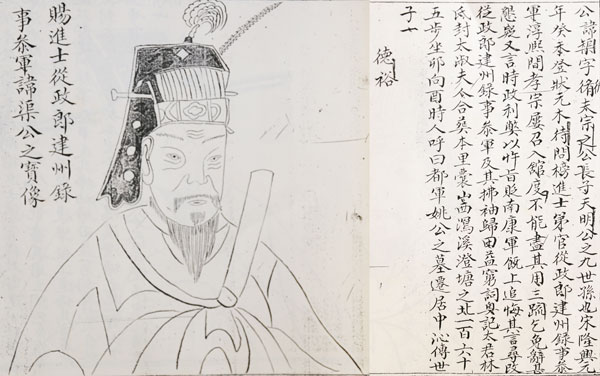 公諱字脩夫宗公長子天明公之九世孫也宋隆興元
年癸未登狀元木待問榜進士第官從政郎建州錄事叅
軍淳熙間孝宗屢召入館度不能盡其用三乞免辭甚
懇又言時政利獘以忤旨貶南康軍旣上追悔其言尋改
從政郎建州錄事叅軍及其拂袖歸田益窮詞奧記太君林
氏封太淑夫人合葬本里囊山西溪澄塘之北一百六十
五步坐卯向酉時人呼曰都軍姚公之墓遷居中沁傳世
子一
德裕
賜進士從政郎建州錄
事叅軍諱渠公之寶像